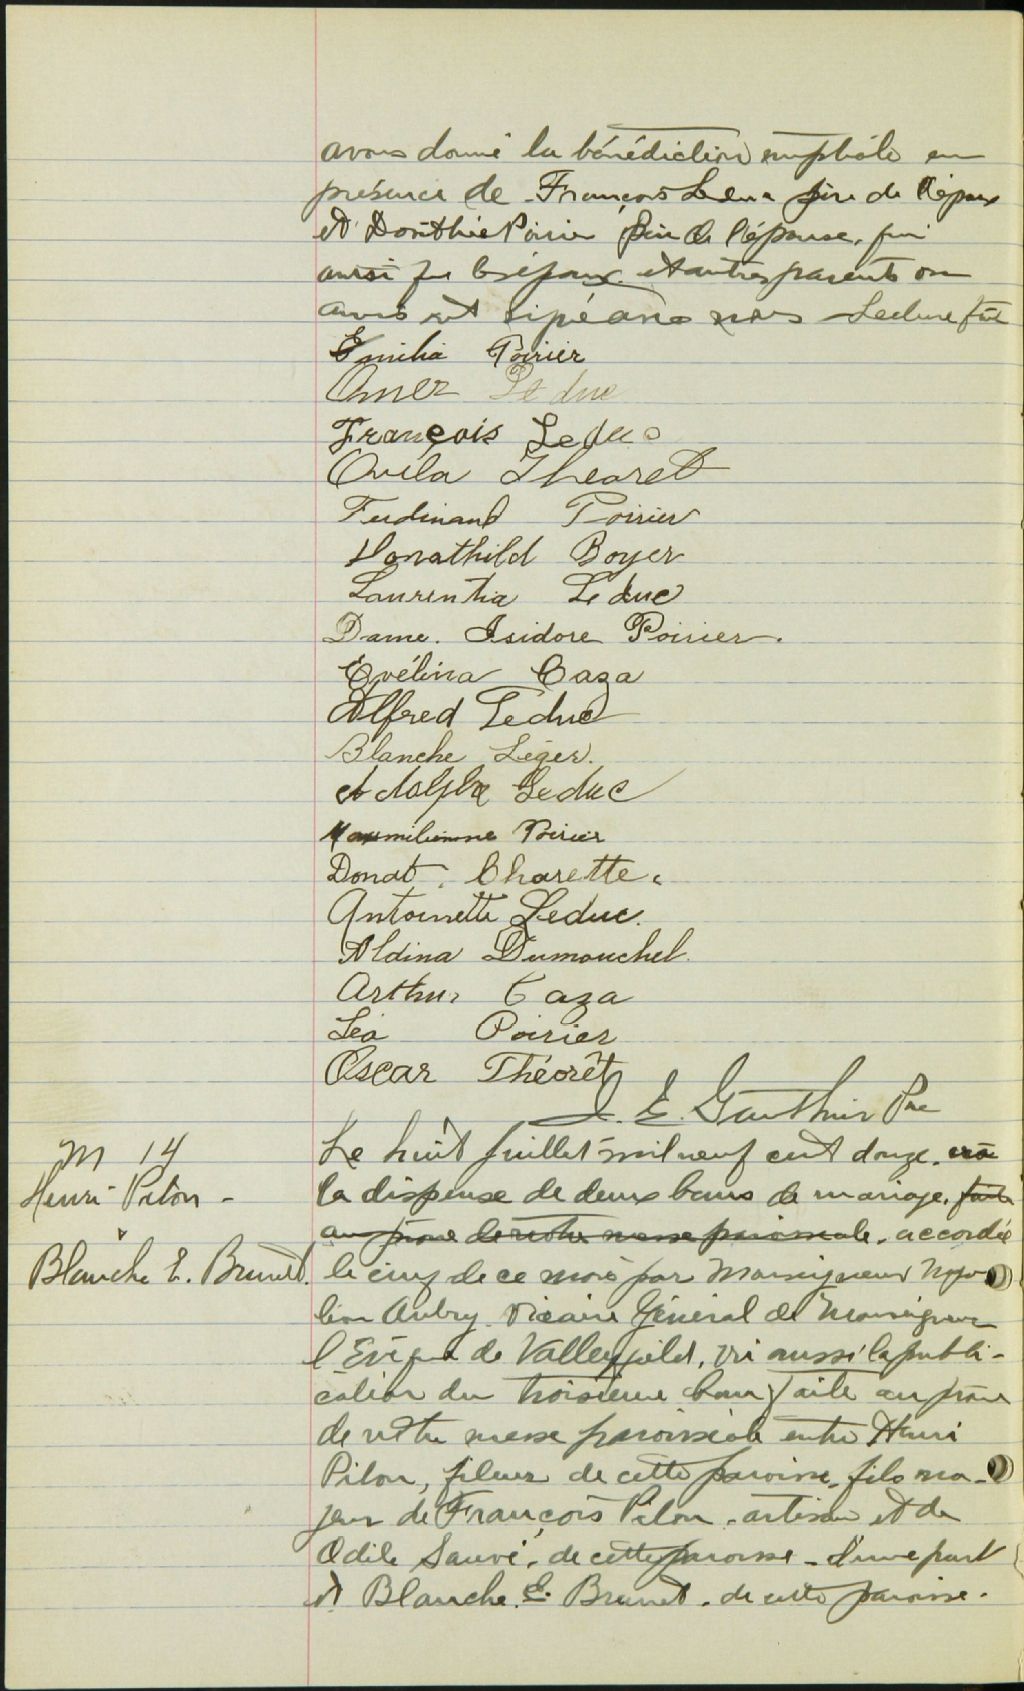 avons donné la bénédiction nuptiale en
présence de François Leduc père de l'époux
et Dorithée Poirier père de l'épouse, qui
aussi que les époux et autres parents ou
amis ont signé avec nous Lecture faite
Emilia Poirier
Omer Leduc
François Leduc
Ovila Thearet
Ferdinand Poirier
Donathild Boyer
Laurentia Leduc
Dame. Isidore Poirier.
Evélina Caza
Alfred Leduc
Blanche Léger.
Adolphe Leduc
Maxmilienne Poirier
Donat. Charette.
Antoinette Leduc.
Aldina Dumouchel.
Arthur Caza
Léa Poirier
Oscar Théorêt
J. E. Gauthier Ptre
M 14
Henri Pilon -
&
Blanche E. Brunet.
Le huit Juillet mil neuf cent douze. vu
la dispense de deux bans de mariage, faite
au prône de notre messe paroissiale, accordée
le cinq de ce mois par Monseigneur Napo
léon Aubry Vicaire Général de Monseigneur
l'Evêque de Valleyfield, vu aussi la publi-
cation du troisième ban faite au prône
de notre messe paroissiale entre Henri
Pilon, fileur de cette paroisse, fils ma-
jeur de François Pilon, artisan et de
Odile Sauvé, de cette paroisse - d'une part
et Blanche E. Brunet. de cette paroisse.